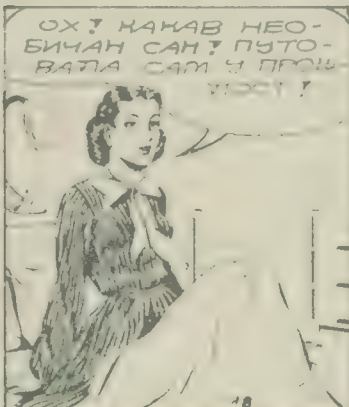 ОХ! КАКАВ НЕО-
БИЧАН САН! ПУТО-
ВАЛА САМ У ПРОШ-
ЛОСТ!
18